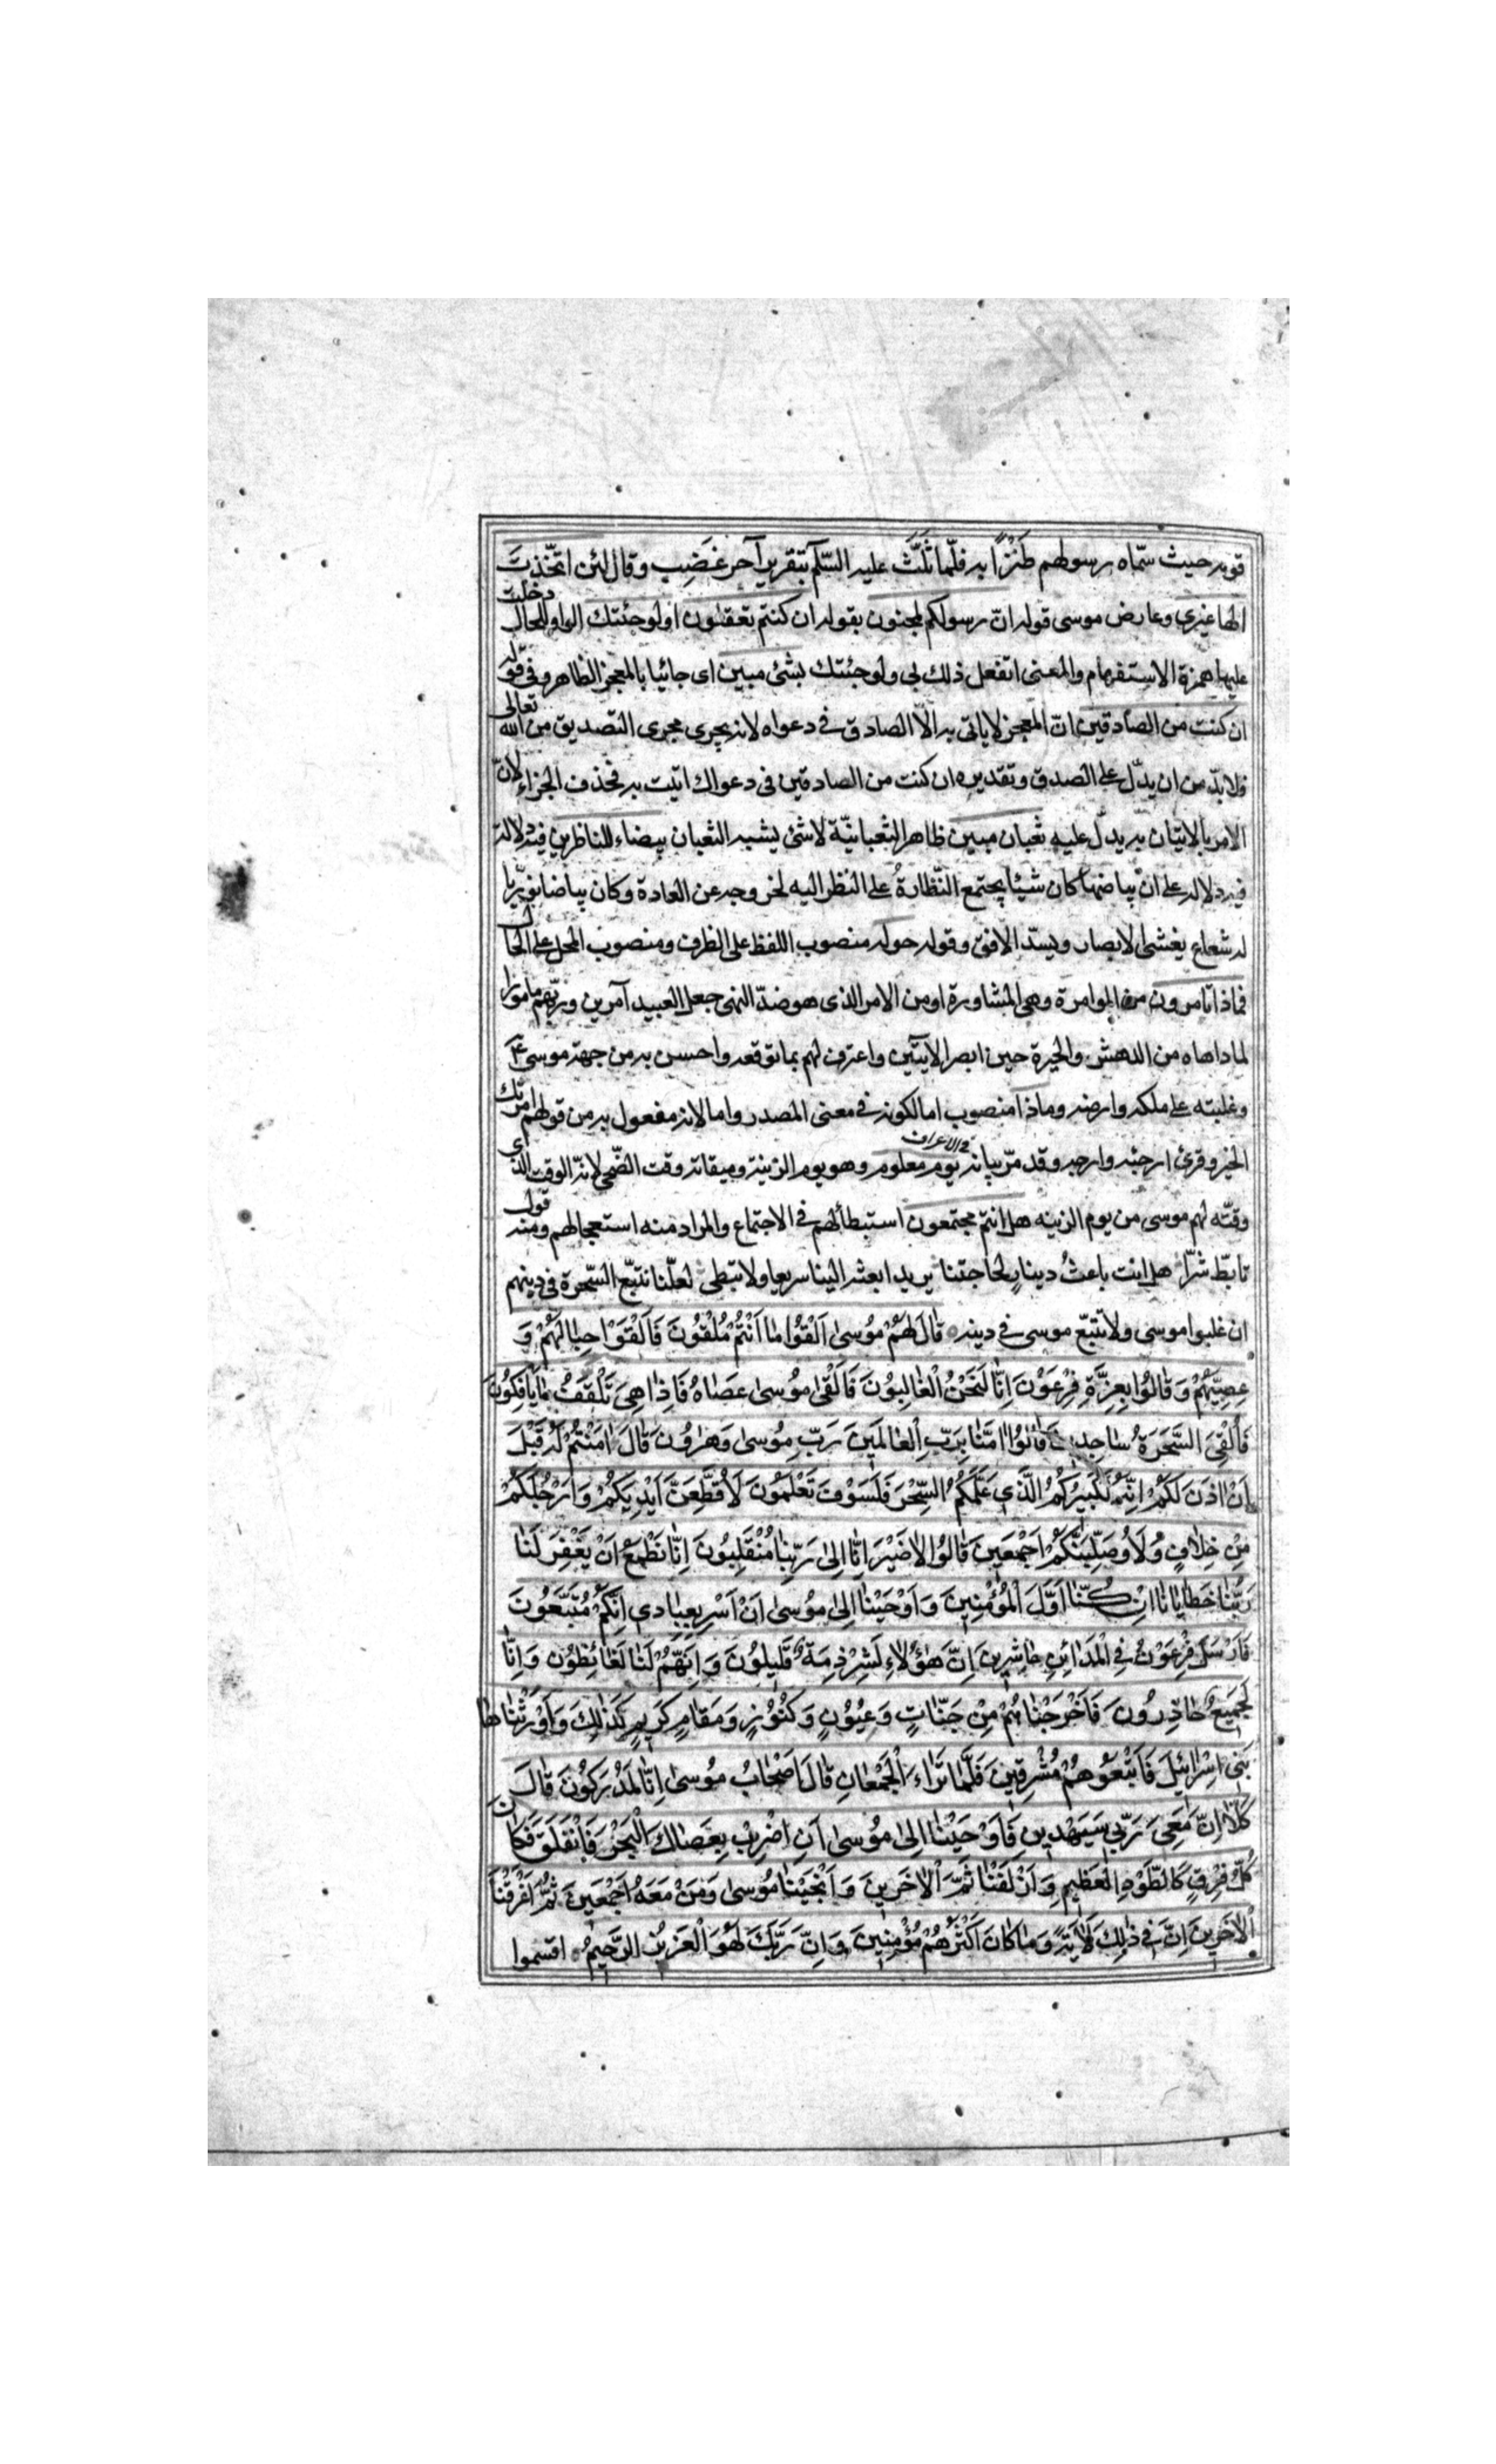 قومه حيث سمّاه رسولهم طَنْزاً به فلمّا ثَلَّثَ عليه السّلم بتقرير آخر غَضِب وقال لئن اتّخذتَ
الها غيري وعارض موسى قوله انّ رسولكم لمجنون بقوله ان كنتم تعقلون اولو جئتك الواو للحال دخلت
عليها همزة الاستفهام والمعنى اتفعل ذلك بي ولو جئتك بشئ مبين اى جائيا بالمعجز الظاهر وفى قوله
ان كنت من الصادقين انّ المعجز لا ياتى به الّا الصادق فى دعواه لانه يجرى مجرى التصديق من الله تعالى
فلابدّ من ان يدلّ على الصدق وتقديره ان كنت من الصادقين فى دعواك اتيت به فحذف الجزاء لانّ
الامر بالاتيان به يدلّ عليه ثعبان مبين ظاهر الثعبانيّة لا شئ يشبه الثعبان بيضاء للناظرين فيه دلالة
فيه دلالة على انّ بياضها كان شيئا يجتمع النّظارة على النظر اليه لخروجه عن العادة وكان بياضا نوريّا
له شعاع يغشى الابصار ويسدّ الافق وقوله حوله منصوب اللفظ على الظرف ومنصوب المحل على الحال
فماذا تامرون من الموامرة وهى المشاورة او من الامر الذى هو ضدّ النهى جعل العبيد آمرين وربّهم مامورا
لما دهاه من الدهش والحيرة حين ابصر الايتين واعترف لهم بما توقعه واحسن به من جهة موسى ع
وغلبته على ملكه وارضه وماذا منصوب اما لكونه فى معنى المصدر واما لانه مفعول به من قولهم امرتك
الخير وقرئ ارجئه وارجه وقد مرّ بيانه فى الاعراف يوم معلوم وهو يوم الزينة وميقاته وقت الضّحى لانّه الوقت الذى
وقّته لهم موسى من يوم الزينه هل انتم مجتمعون استبطاء لهم فى الاجتماع والمراد منه استعجالهم ومنه قول
تابّط شرّا هل انت باعثُ دينار لحاجتنا يريد ابعثه الينا سريعا ولا تبطى لعلّنا نتّبع السّحرة فى دينهم
ان غلبوا موسى ولا نتّبع موسى فى دينه قالَ لَهُمْ مُوسىٰ اَلْقُوا مٰا اَنْتُمْ مُلْقُونَ فَاَلْقَوْا حِبٰالَهُمْ وَ
عِصِيَّهُمْ وَقٰالُوا بِعِزَّةِ فِرْعَوْنَ اِنّٰا لَنَحْنُ الْغٰالِبُونَ فَاَلْقىٰ مُوسىٰ عَصٰاهُ فَاِذٰا هِيَ تَلْقَفُ مٰا يَأْفِكُونَ
فَاُلْقِيَ السَّحَرَةُ سٰاجِدِينَ قٰالُوا اٰمَنّٰا بِرَبِّ الْعٰالَمِينَ رَبِّ مُوسىٰ وَهٰرُونَ قٰالَ اٰمَنْتُمْ لَهُ قَبْلَ
اَنْ اٰذَنَ لَكُمْ اِنَّهُ لَكَبِيرُكُمُ الَّذِي عَلَّمَكُمُ السِّحْرَ فَلَسَوْفَ تَعْلَمُونَ لَاُقَطِّعَنَّ اَيْدِيَكُمْ وَاَرْجُلَكُمْ
مِنْ خِلاٰفٍ وَلَاُوصَلِّبَنَّكُمْ اَجْمَعِينَ قٰالُوا لاٰ ضَيْرَ اِنّٰا اِلىٰ رَبِّنٰا مُنْقَلِبُونَ اِنّٰا نَطْمَعُ اَنْ يَغْفِرَ لَنٰا
رَبُّنٰا خَطٰايٰانٰا اَنْ كُنّٰا اَوَّلَ الْمُؤْمِنِينَ وَاَوْحَيْنٰا اِلىٰ مُوسىٰ اَنْ اَسْرِ بِعِبٰادِي اِنَّكُمْ مُتَّبَعُونَ
فَاَرْسَلَ فِرْعَوْنُ فِي الْمَدٰائِنِ حٰاشِرِينَ اِنَّ هٰؤُلاٰءِ لَشِرْذِمَةٌ قَلِيلُونَ وَاِنَّهُمْ لَنٰا لَغٰائِظُونَ وَاِنّٰا
لَجَمِيعٌ حٰاذِرُونَ فَاَخْرَجْنٰاهُمْ مِنْ جَنّٰاتٍ وَعُيُونٍ وَكُنُوزٍ وَمَقٰامٍ كَرِيمٍ كَذٰلِكَ وَاَوْرَثْنٰاهٰا
بَنِي اِسْرٰائِيلَ فَاَتْبَعُوهُمْ مُشْرِقِينَ فَلَمّٰا تَرٰاءَ الْجَمْعٰانِ قٰالَ اَصْحٰابُ مُوسىٰ اِنّٰا لَمُدْرَكُونَ قٰالَ
كَلّٰا اِنَّ مَعِيَ رَبِّي سَيَهْدِينِ فَاَوْحَيْنٰا اِلىٰ مُوسىٰ اَنِ اضْرِبْ بِعَصٰاكَ الْبَحْرَ فَانْفَلَقَ فَكٰانَ
كُلُّ فِرْقٍ كَالطَّوْدِ الْعَظِيمِ وَاَزْلَفْنٰا ثَمَّ الْاٰخَرِينَ وَاَنْجَيْنٰا مُوسىٰ وَمَنْ مَعَهُ اَجْمَعِينَ ثُمَّ اَغْرَقْنَا
الْاٰخَرِينَ اِنَّ فِي ذٰلِكَ لَاٰيَةً وَمٰا كٰانَ اَكْثَرُهُمْ مُؤْمِنِينَ وَاِنَّ رَبَّكَ لَهُوَ الْعَزِيزُ الرَّحِيمُ اقسموا